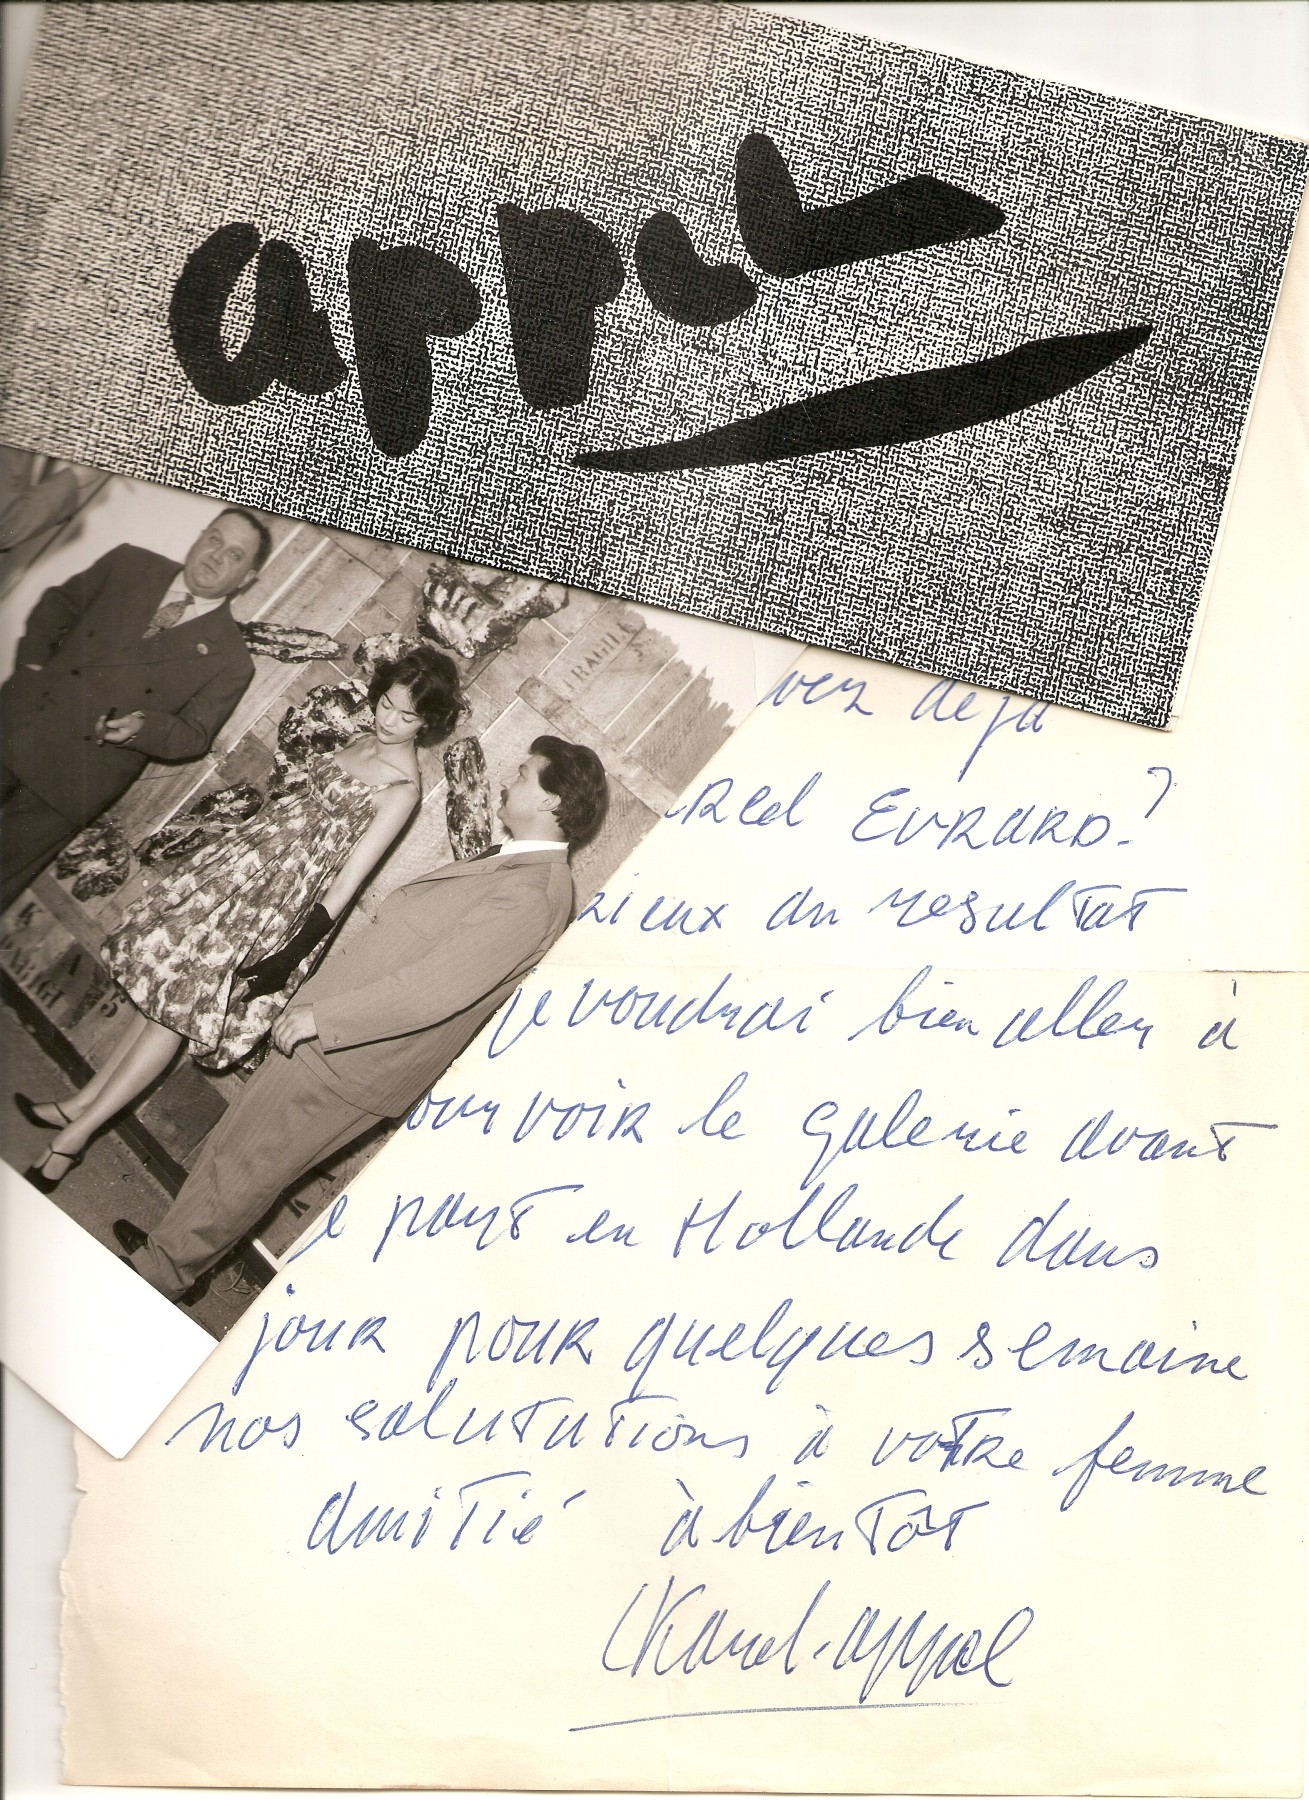 appel
FRAGILE
vez deja
rcel EVRARD?
rieux du resultat
je voudrai bien aller à
our voir le galerie avant
e part en Hollande dans
jour pour quelques semaine
nos salutations à votre femme
amitié à bientôt
Karel. appel